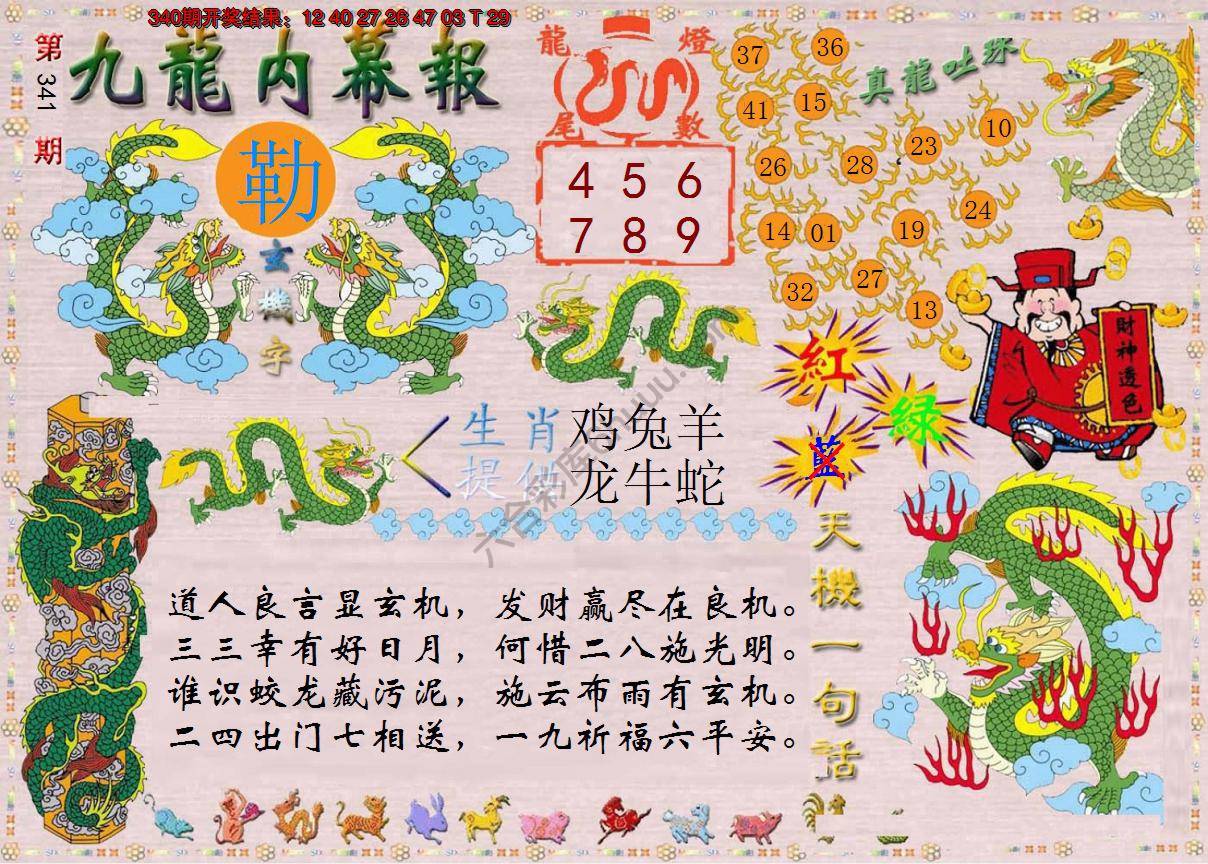 340期开奖结果：12 40 27 26 47 03 T 29
第
341
期
九龍内幕報
勒
玄
機
字
龍 燈
尾 數
4 5 6
7 8 9
真龍吐珠
37
36
41
15
26
28
23
10
14
01
19
24
32
27
13
紅
綠
藍
財神透色
生肖
提供
鸡兔羊
龙牛蛇
天機一句話
道人良言显玄机，发财赢尽在良机。
三三幸有好日月，何惜二八施光明。
谁识蛟龙藏污泥，施云布雨有玄机。
二四出门七相送，一九祈福六平安。